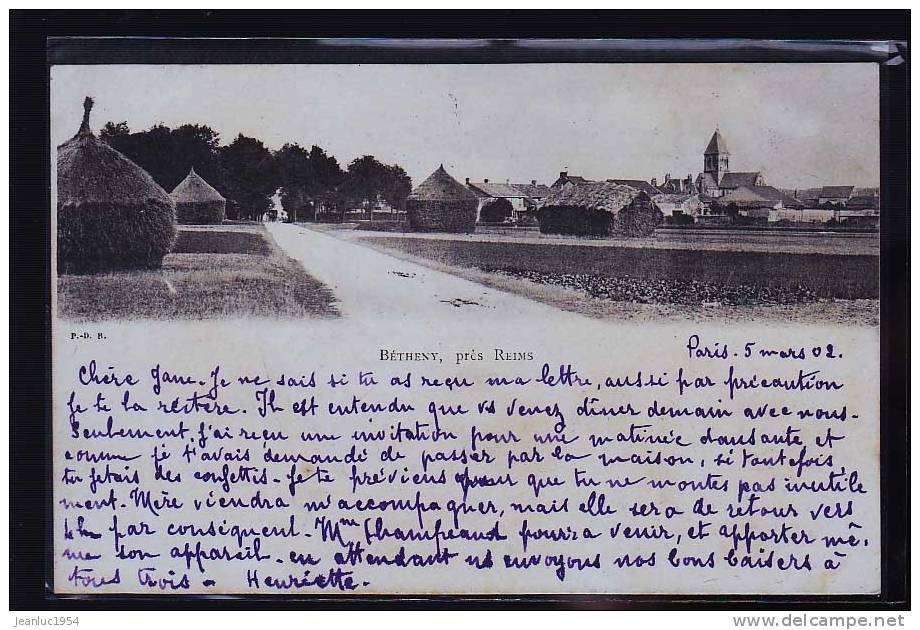 P.-D. R.
BÉTHENY, près REIMS
Paris. 5 mars 02.
Chère Jane. Je ne sais si tu as reçu ma lettre, aussi par précaution
je te la réitère. Il est entendu que vs venez dîner demain avec nous.
Seulement, j'ai reçu une invitation pour une matinée dansante et
comme je t'avais demandé de passer par la maison, si toutefois,
tu jetais des confettis. je te préviens pour que tu ne montes pas inutile
ment. Mère viendra m'accompagner, mais elle sera de retour vers
4h par conséquent. Mme Chamfreaud pourra venir, et apporter mê.
me son appareil. en attendant ns envoyons nos bons baisers à
tous trois. Henriette.
jeanluc1954
www.delcampe.net